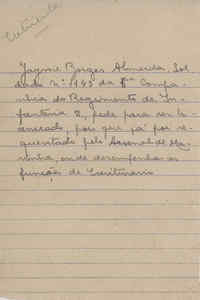 Jayme Borges Almeida, Sol
dado nº 195 da Compa-
nhia do Regimento de In-
fantaria 2, pede para ser li-
cenceado, pois que já foi re-
quesitado pelo Arsenal de Ma-
rinha, onde desempenhava as
funções de Escriturario